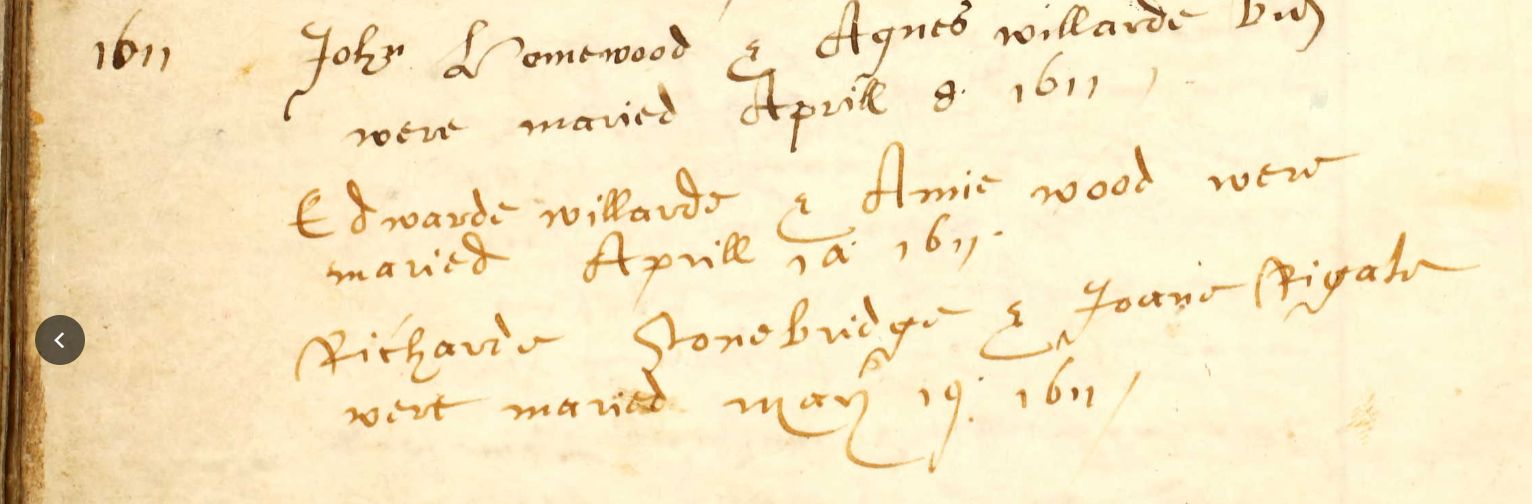 1611 John Homewood & Agnes willarde vid
were maried Aprill 8. 1611
Edwarde willarde & Amie wood were
maried Aprill 1a. 1611.
Richarde Stonebridge & Joane Rigate
were maried may 19. 1611